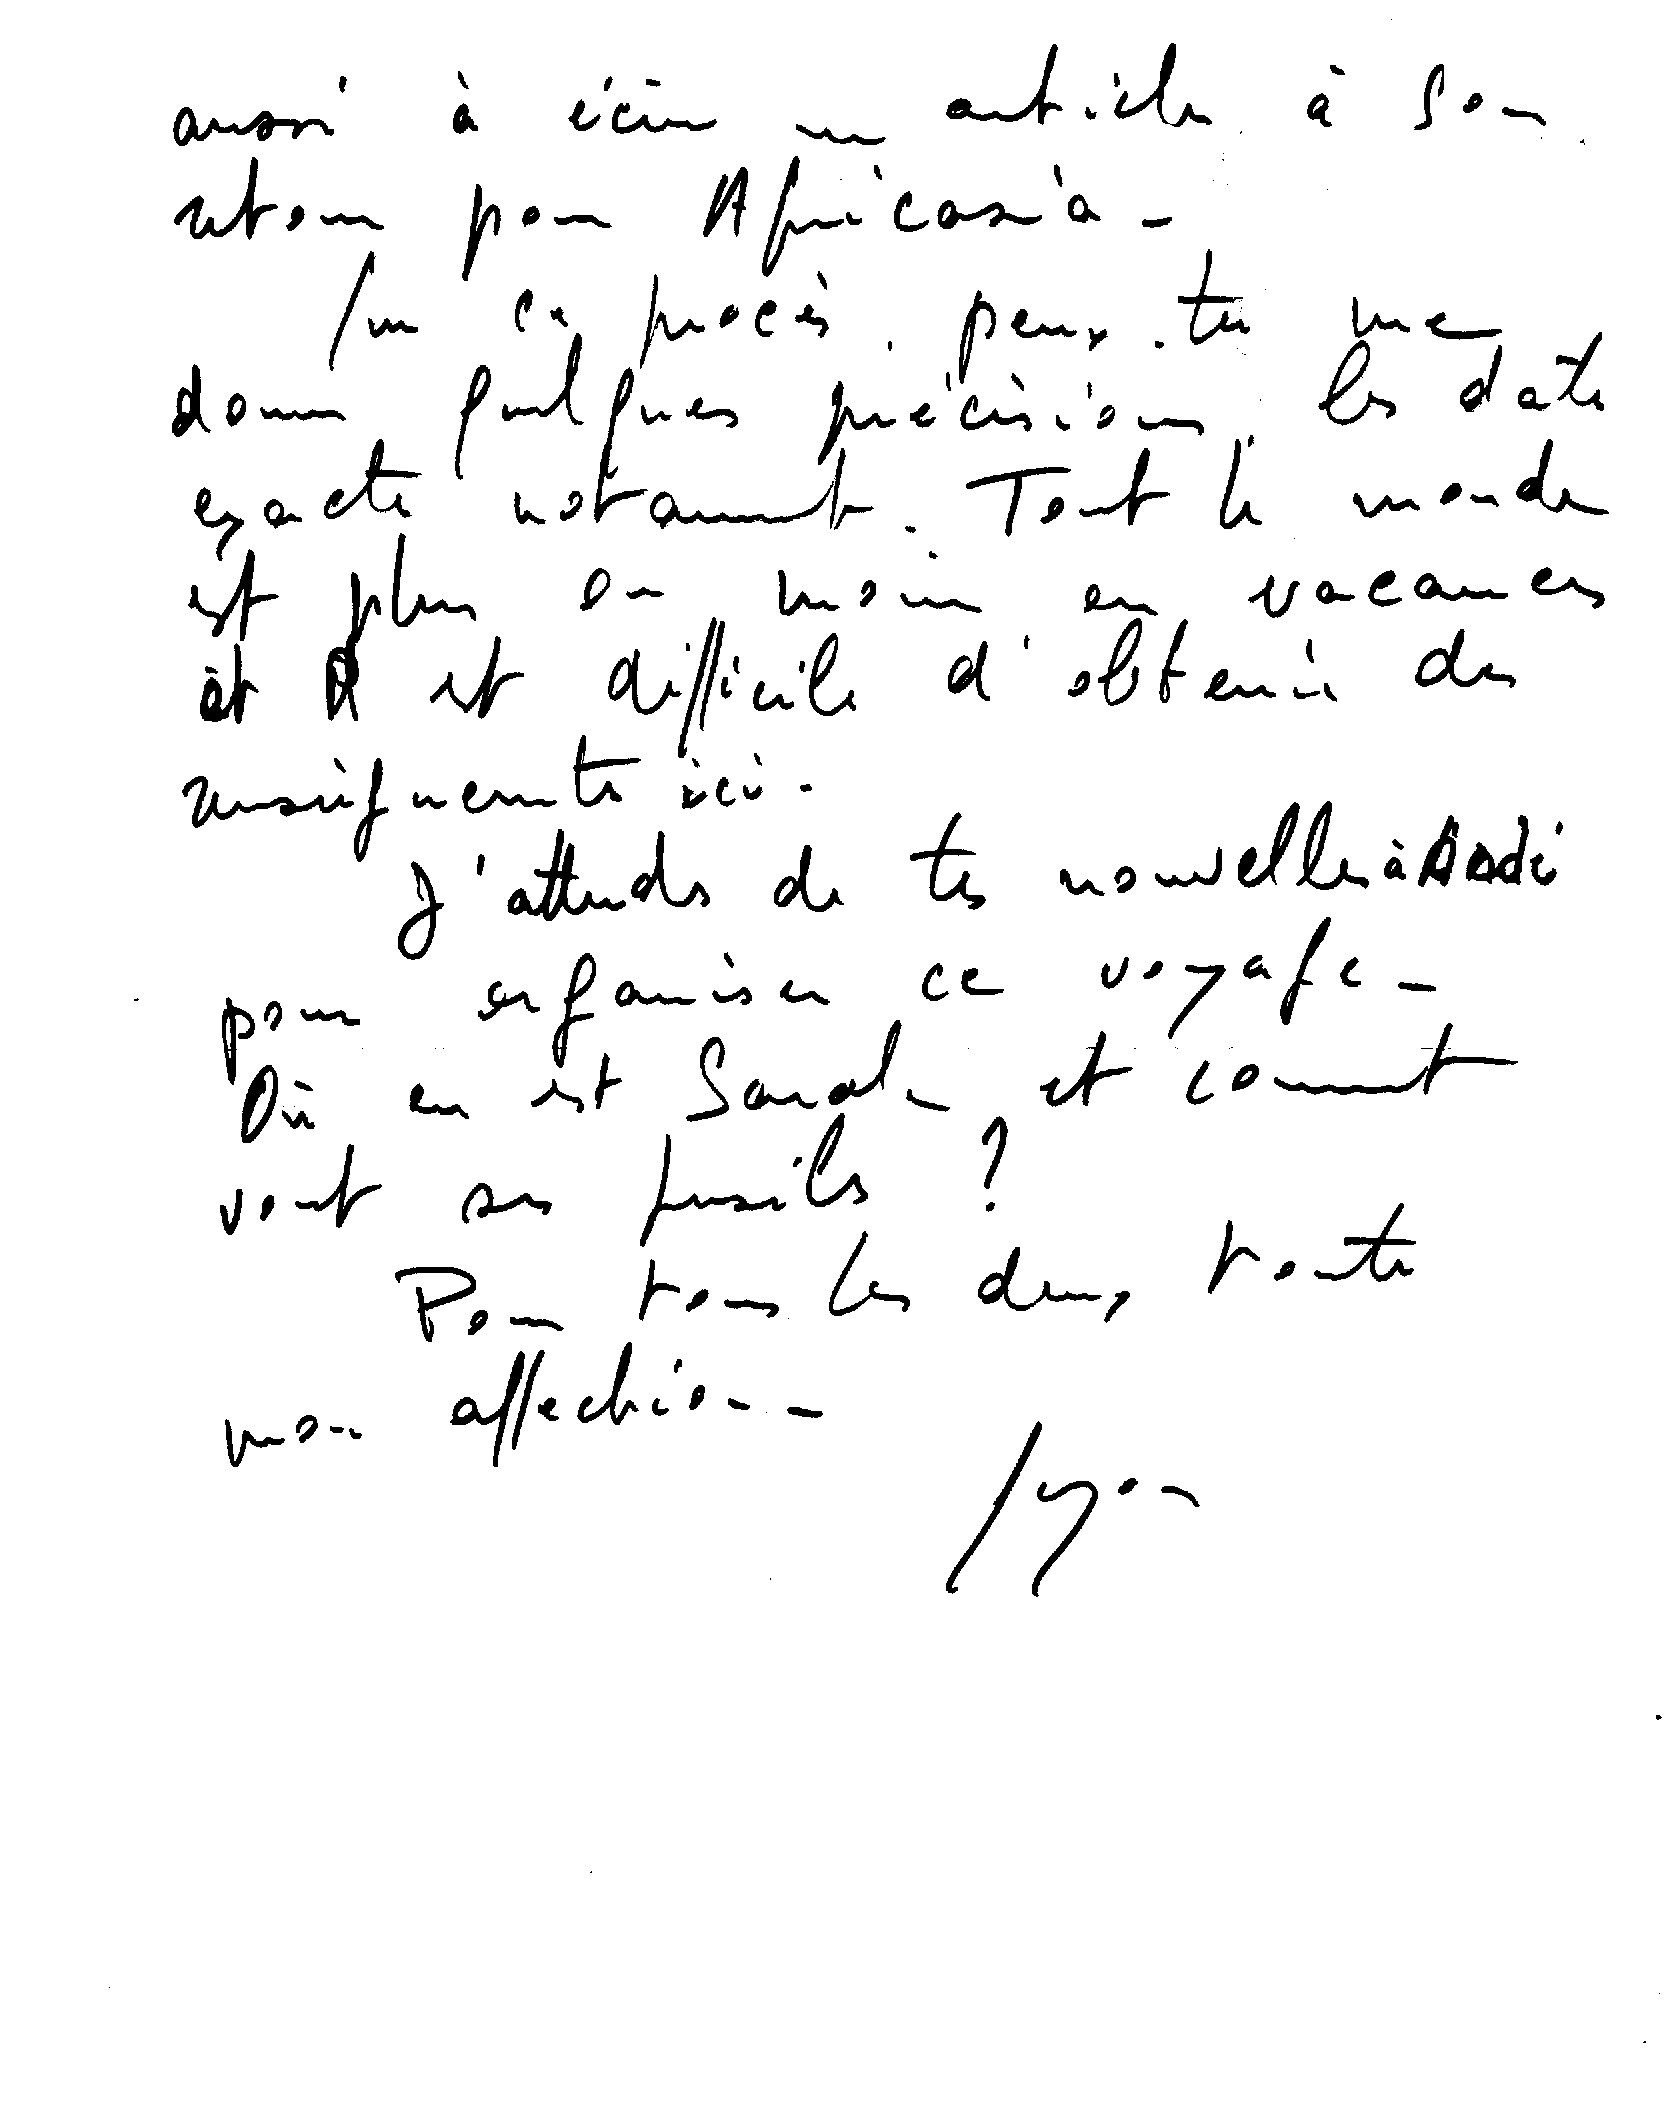 aussi à écrire un article à son
retour pour Africasia -
Sur ce procès, peux-tu me
donner quelques précisions, les dates
exactes notamment. Tout le monde
est plus ou moins en vacances
et il est difficile d'obtenir des
renseignements ici.
J'attends de tes nouvelles à
pour organiser ce voyage -
Où en est et comment
vont ses fusils ?
Pour tous les deux, toute
mon affection -